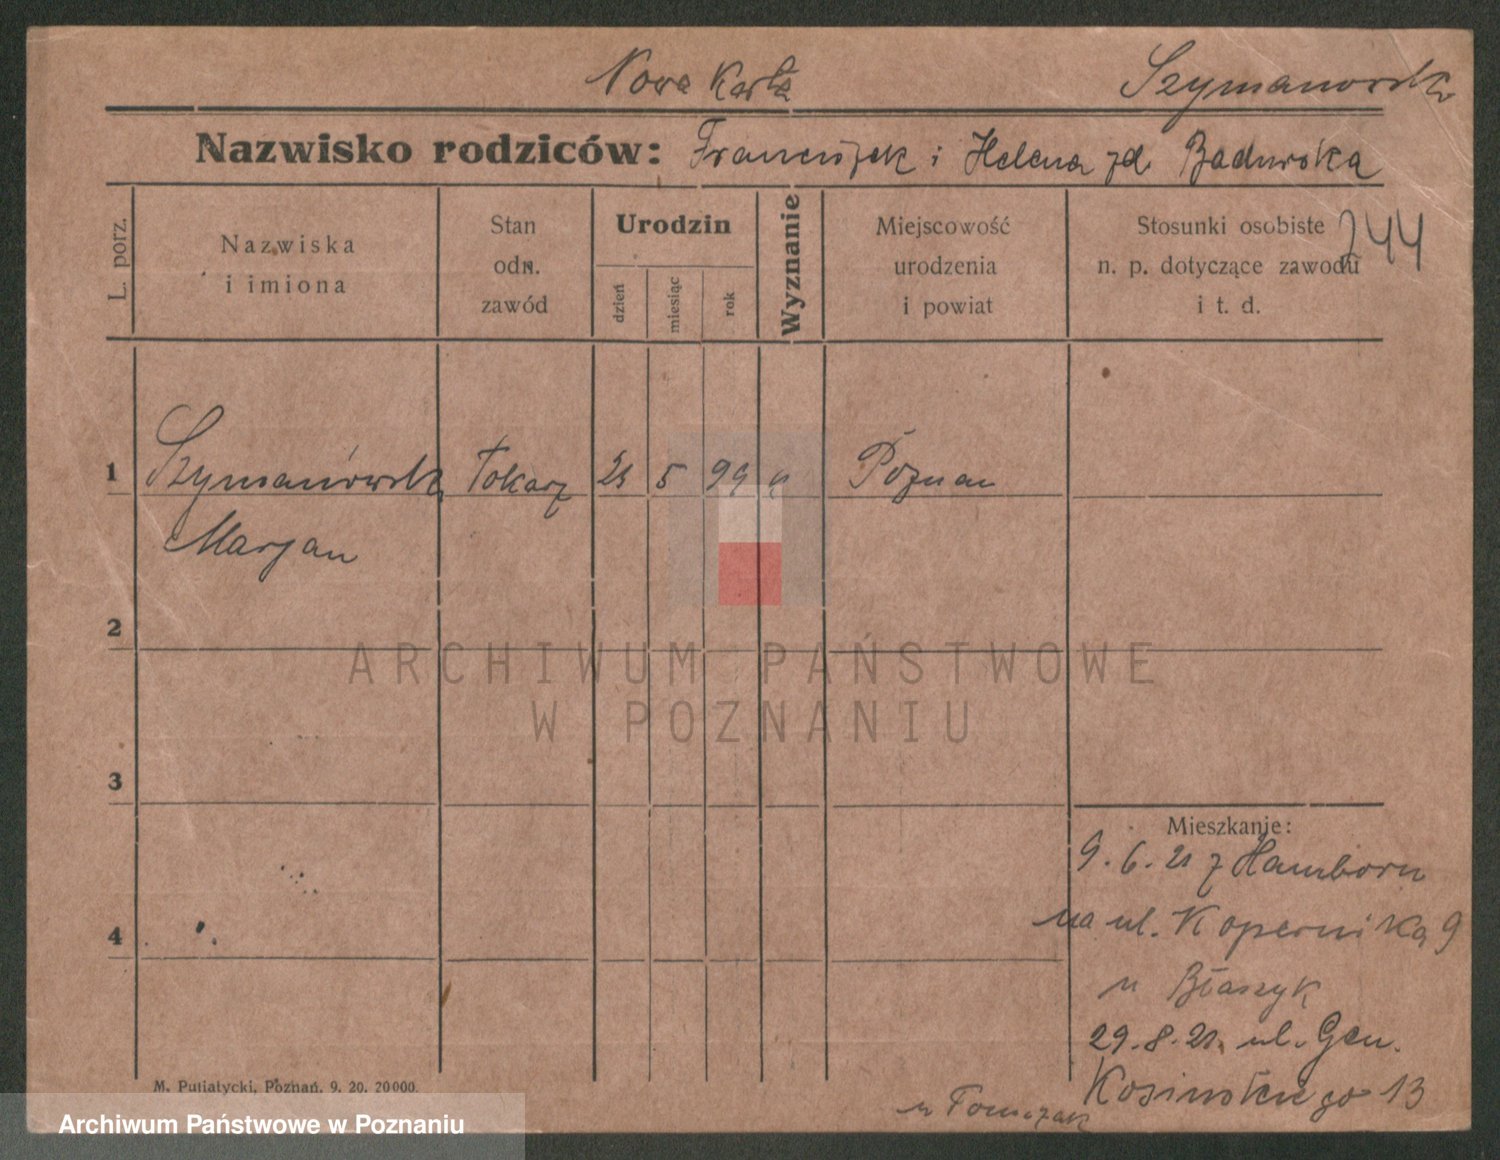 Nowa Karta Szymanowsk
Nazwisko rodziców: Franciszek i Helena zd. Badurska
L. porz.
Nazwiska
i imiona
Stan
odn.
zawód
Urodzin
dzień
miesiąc
rok
Wyznanie
Miejscowość
urodzenia
i powiat
Stosunki osobiste
n. p. dotyczące zawodu
i t. d.
244
1 Szymanowski Tokarz 5 99 Poznan
Marjan
2
3
4
ARCHIWUM PAŃSTWOWE
W POZNANIU
Mieszkanie:
9. 6. 21 z Hamborn
na ul. Kopernika 9
u Błaszyk
29. 8. 21. ul. Gen.
Kosinskiego 13
u Tomczak
M. Putiatycki, Poznań. 9. 20. 20000.
Archiwum Państwowe w Poznaniu